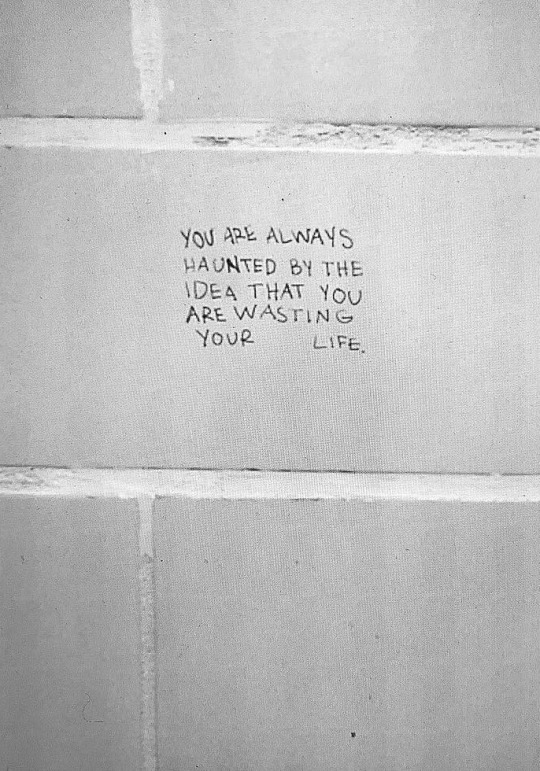 YOU ARE ALWAYS
HAUNTED BY THE
IDEA THAT YOU
ARE WASTING
YOUR LIFE.